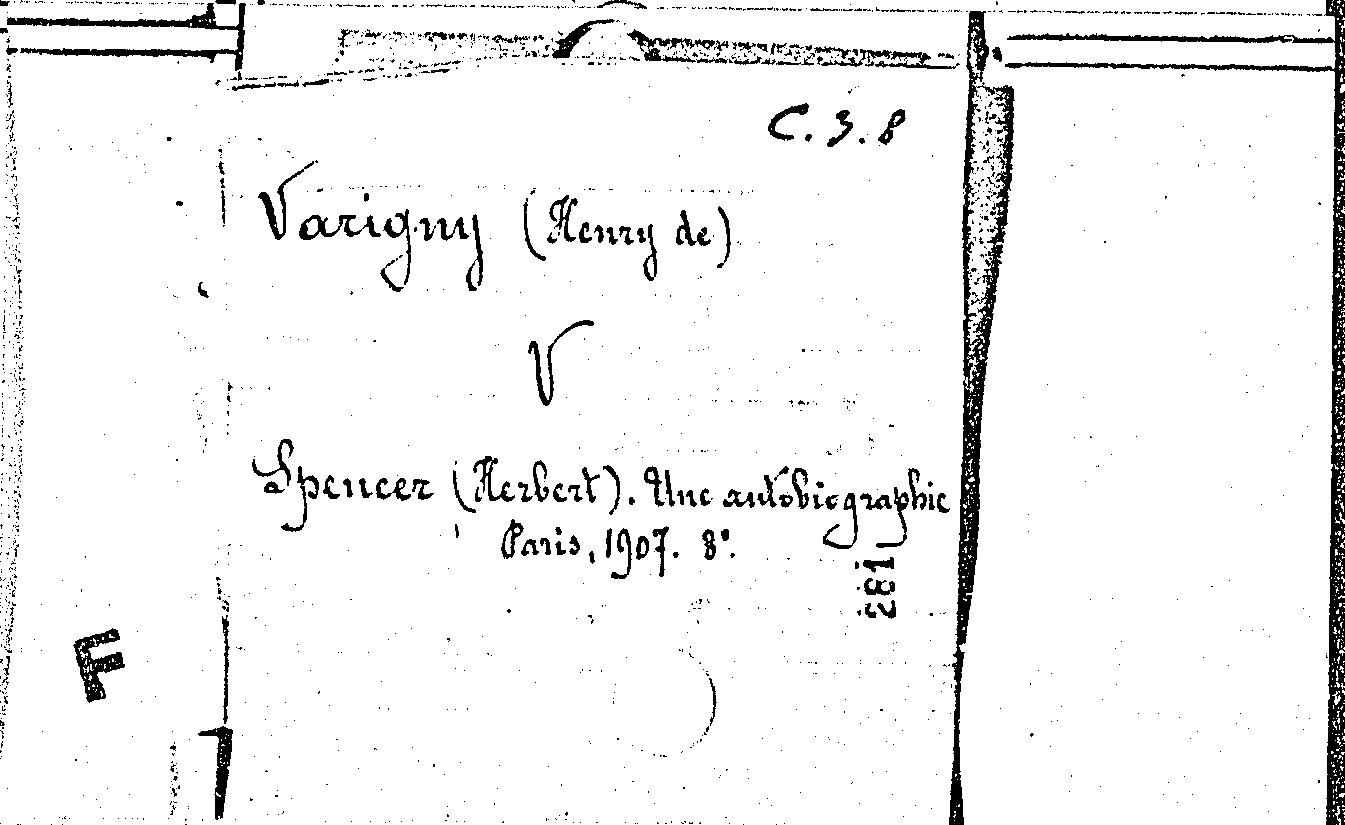 C. 3. 8
Varigny (Henry de)
V
Spencer (Herbert). Une autobiographie
Paris, 1907. 8°.
281
F